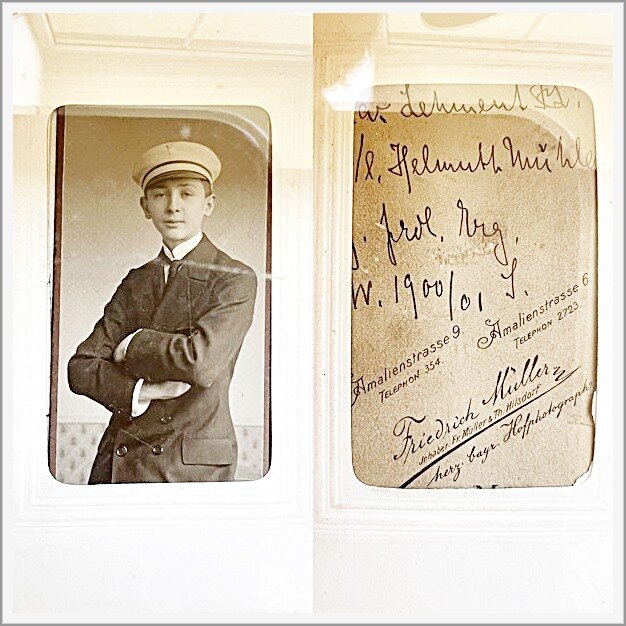 Lehment
/l. Helmuth Mühle
frdl. Erg.
W. 1900/01 S.
Amalienstrasse 9.
TELEPHON 354.
Amalienstrasse 6
TELEPHON 2723.
Friedrich Müller
Inhaber: Fr. Müller & Th. Hilsdorf
herz. bayr. Hofphotograph